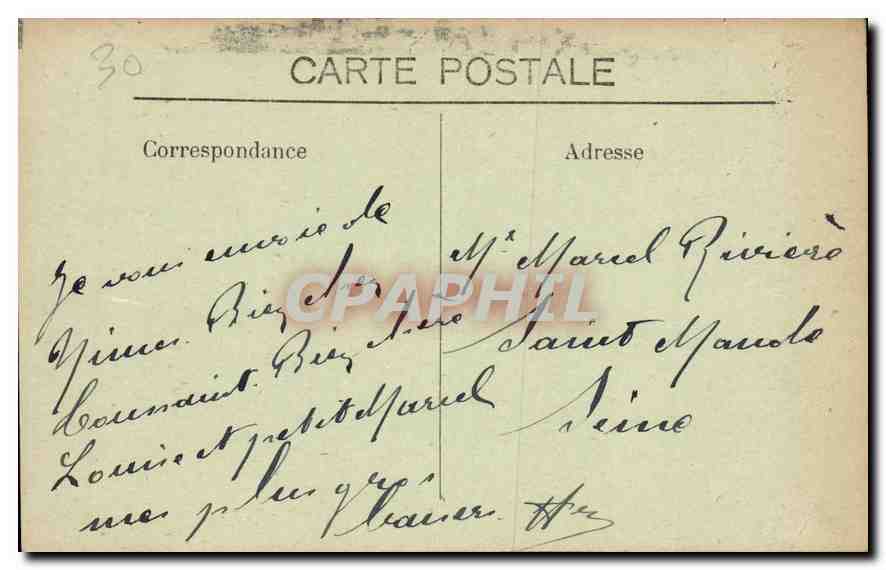 30
CARTE POSTALE
Correspondance
Adresse
Je vous envoie de
Nimes. Bien cher
Toussaint. Bien chere
Louise et petit Marcel
mes plus gros
baisers.
Mr Marcel Rivière
Saint Mande
Seine
CPAPHIL